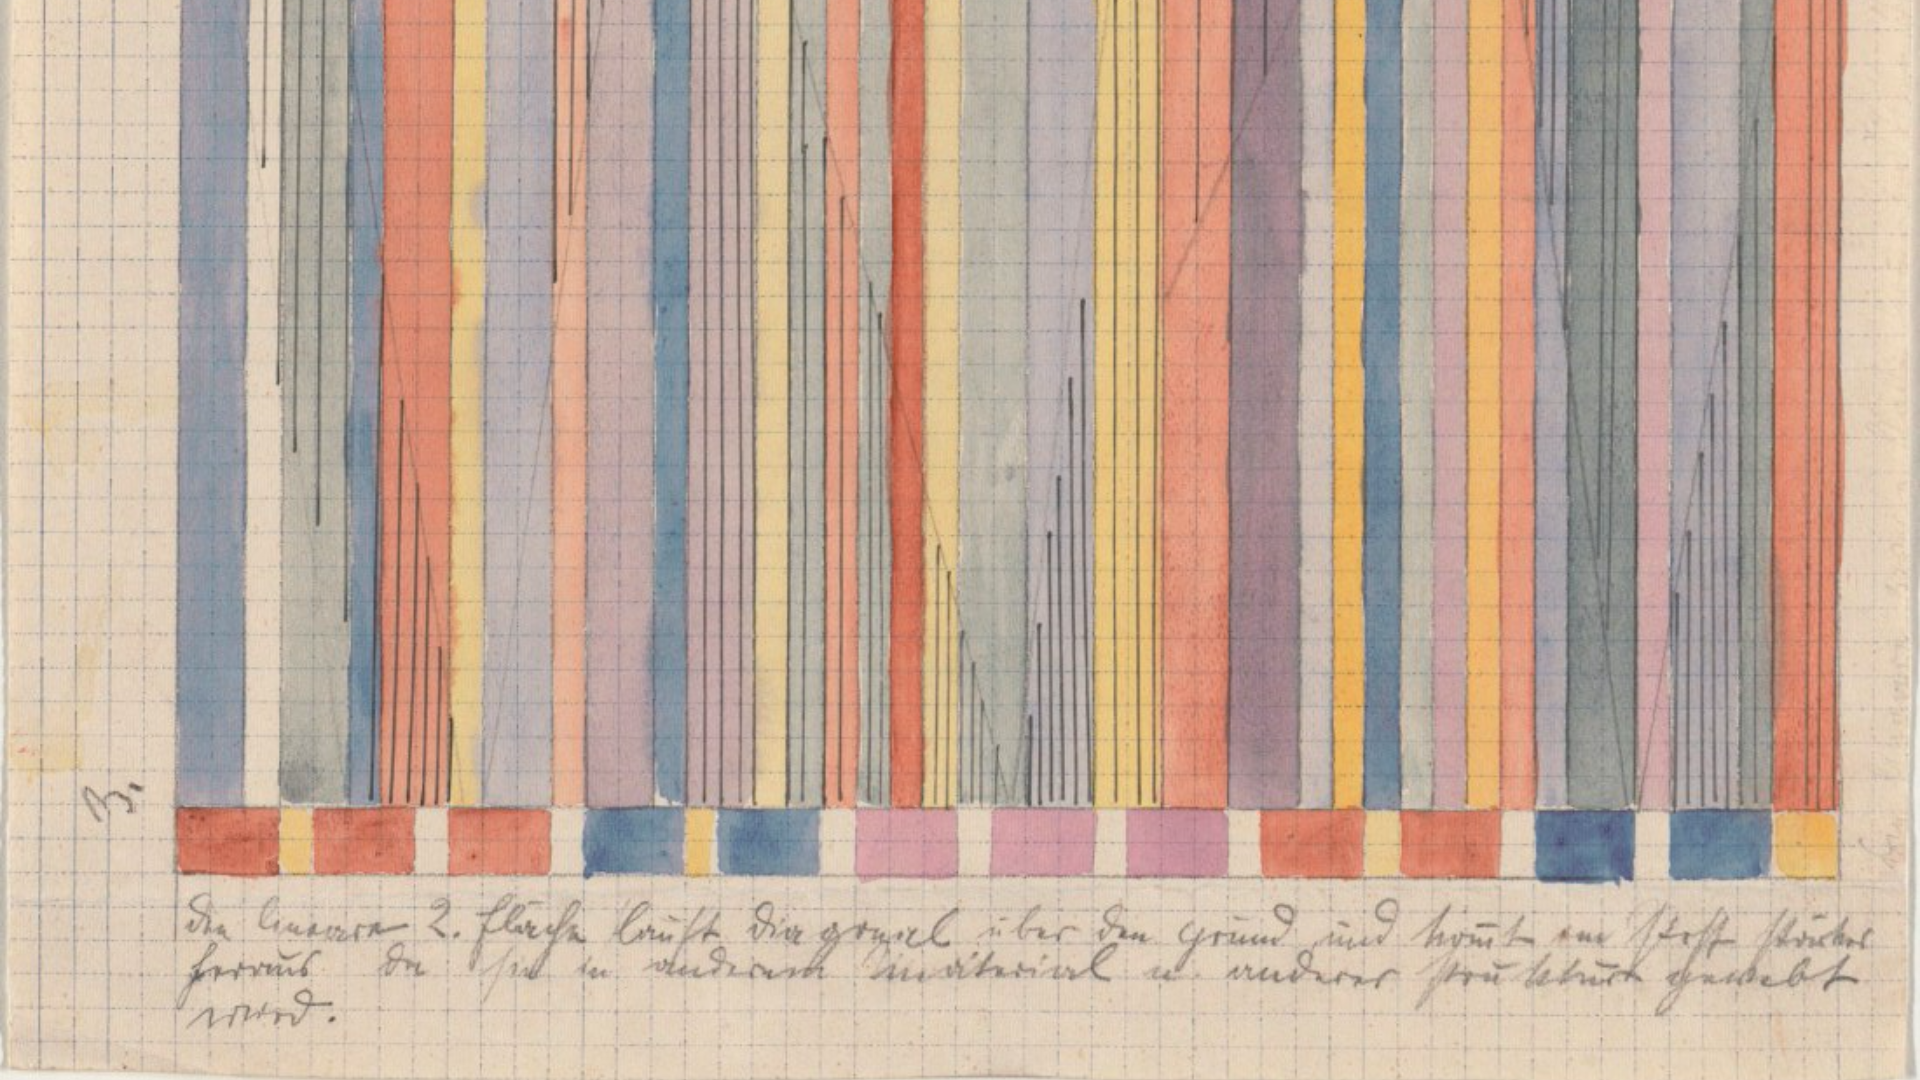 B.
die lineare 2. fläche läuft diagonal über den grund und kommt am stoff stärker
heraus da sie in anderem material u. anderer struktur gewebt
wird.